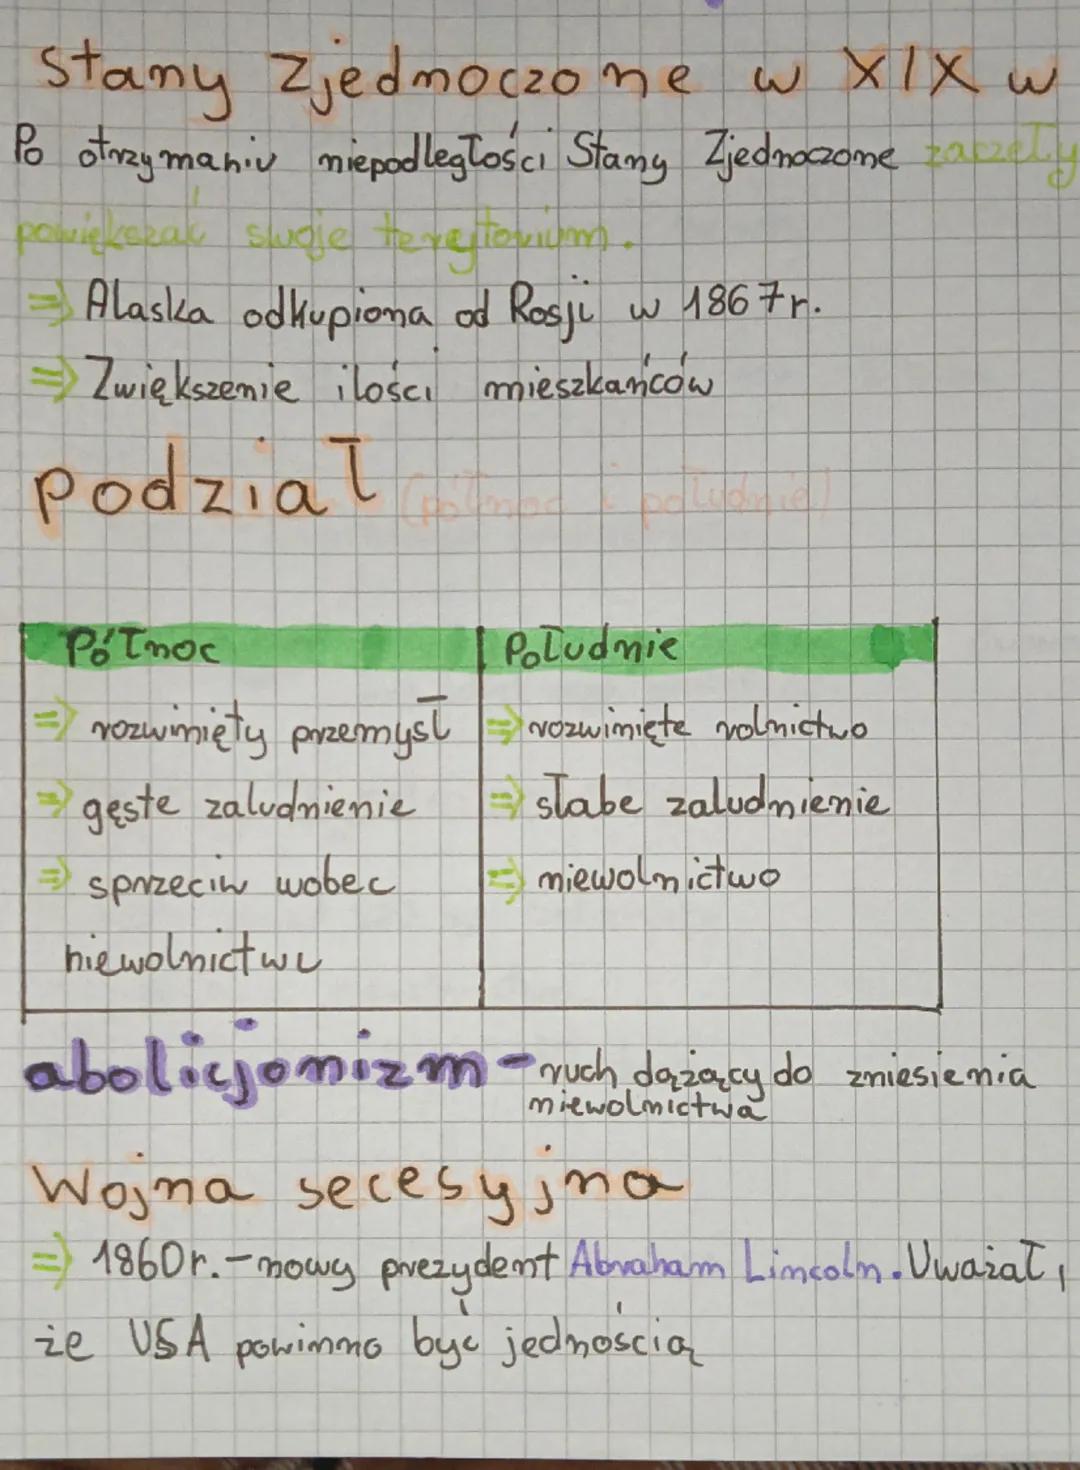 Stany Zjednoczone w XIX w
Po otrzymaniu niepodległości Stany Zjednoczone zaczęły
powiększać swoje terytorium.
⇒ Alaska odkupiona od Rosji w 1867r.
⇒ Zwiększenie ilości mieszkańców
Podział (północ i południe)
Północ
⇒ rozwinięty przemysł
⇒ gęste zaludnienie
⇒ sprzeciw wobec
niewolnictwu
Południe
⇒ rozwinięte rolnictwo
⇒ słabe zaludnienie
⇒ niewolnictwo
abolicjonizm - ruch dążący do zniesienia
niewolnictwa
Wojna secesyjna
⇒ 1860r. - nowy prezydent Abraham Lincoln. Uważał,
że USA powinno być jednością